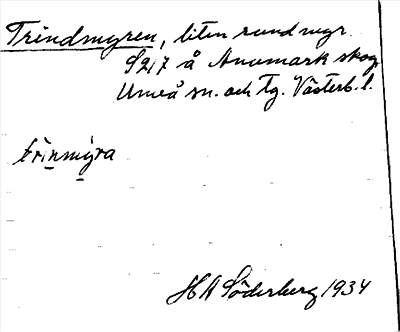 Trindmyren, liten rund myr
S2,7 å Anumark skog,
Umeå sn. och tg. Västerb. l.
trinmýra
HA Söderberg 1934